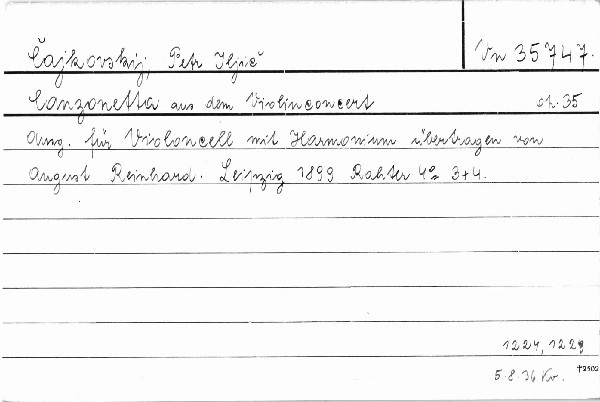 Čajkovskij, Petr Iljič
Vn 35747.
Canzonetta aus dem Violinconcert op. 35
Ausg. für Violoncell mit Harmonium übertragen von
August Reinhard. Leipzig 1899 Rahter 4° 3+4.
1224, 1229
5.8.36 Kv.
†2502